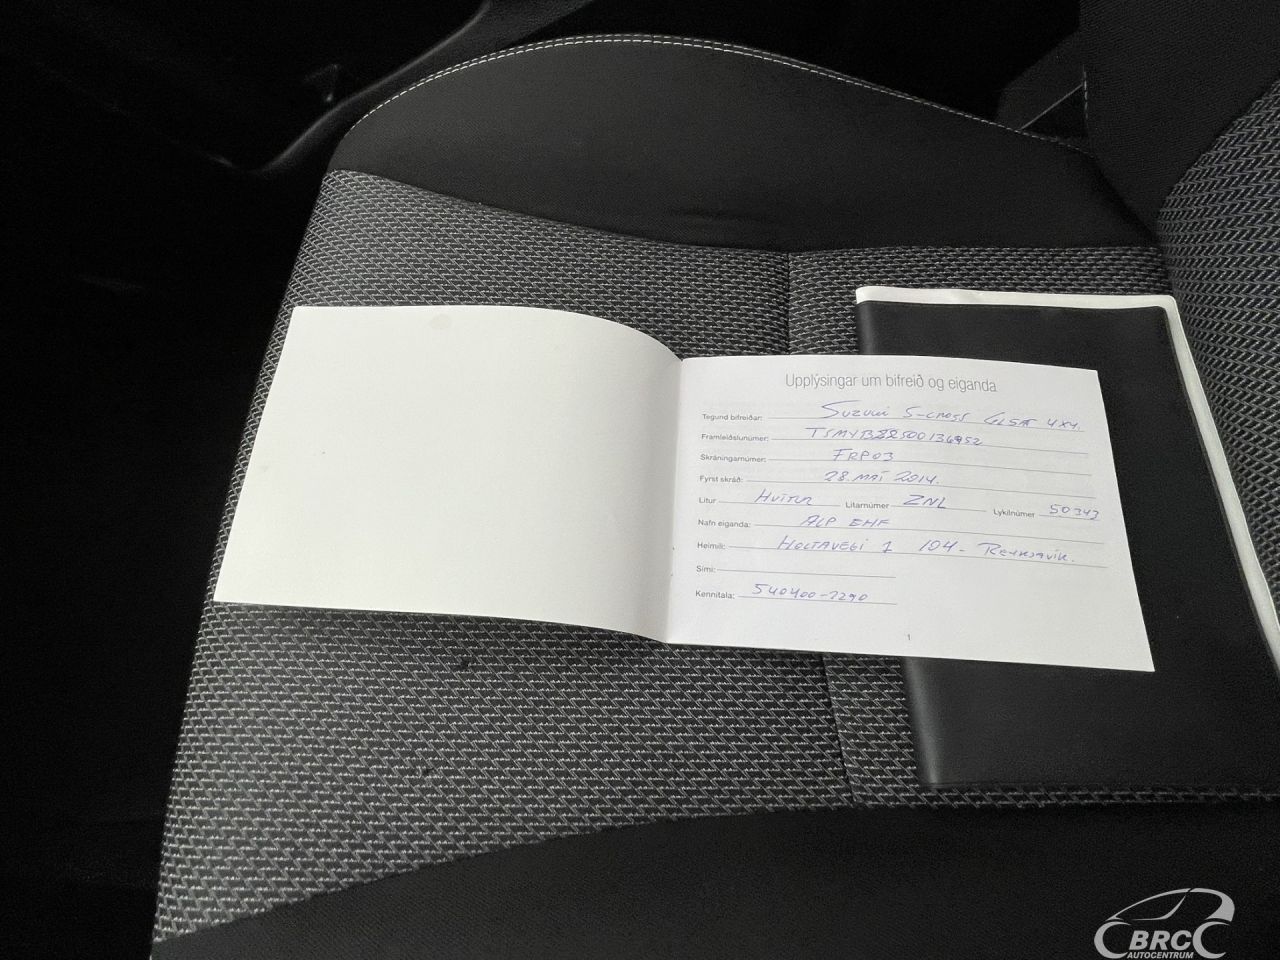 Upplýsingar um bifreið og eiganda
Tegund bifreiðar: Suzuki S-cross 4x4.
Framleiðslunúmer:
Skráningarnúmer: FRP03
Fyrst skráð: 28. maí 2014.
Litur Hvítur Litarnúmer ZNL Lykilnúmer 50343
Nafn eiganda: ALP EHF
Heimili: Holtavegi 1 104 - Reykjavík.
Sími:
Kennitala: 540400-2290
1
BRC
AUTOCENTRUM